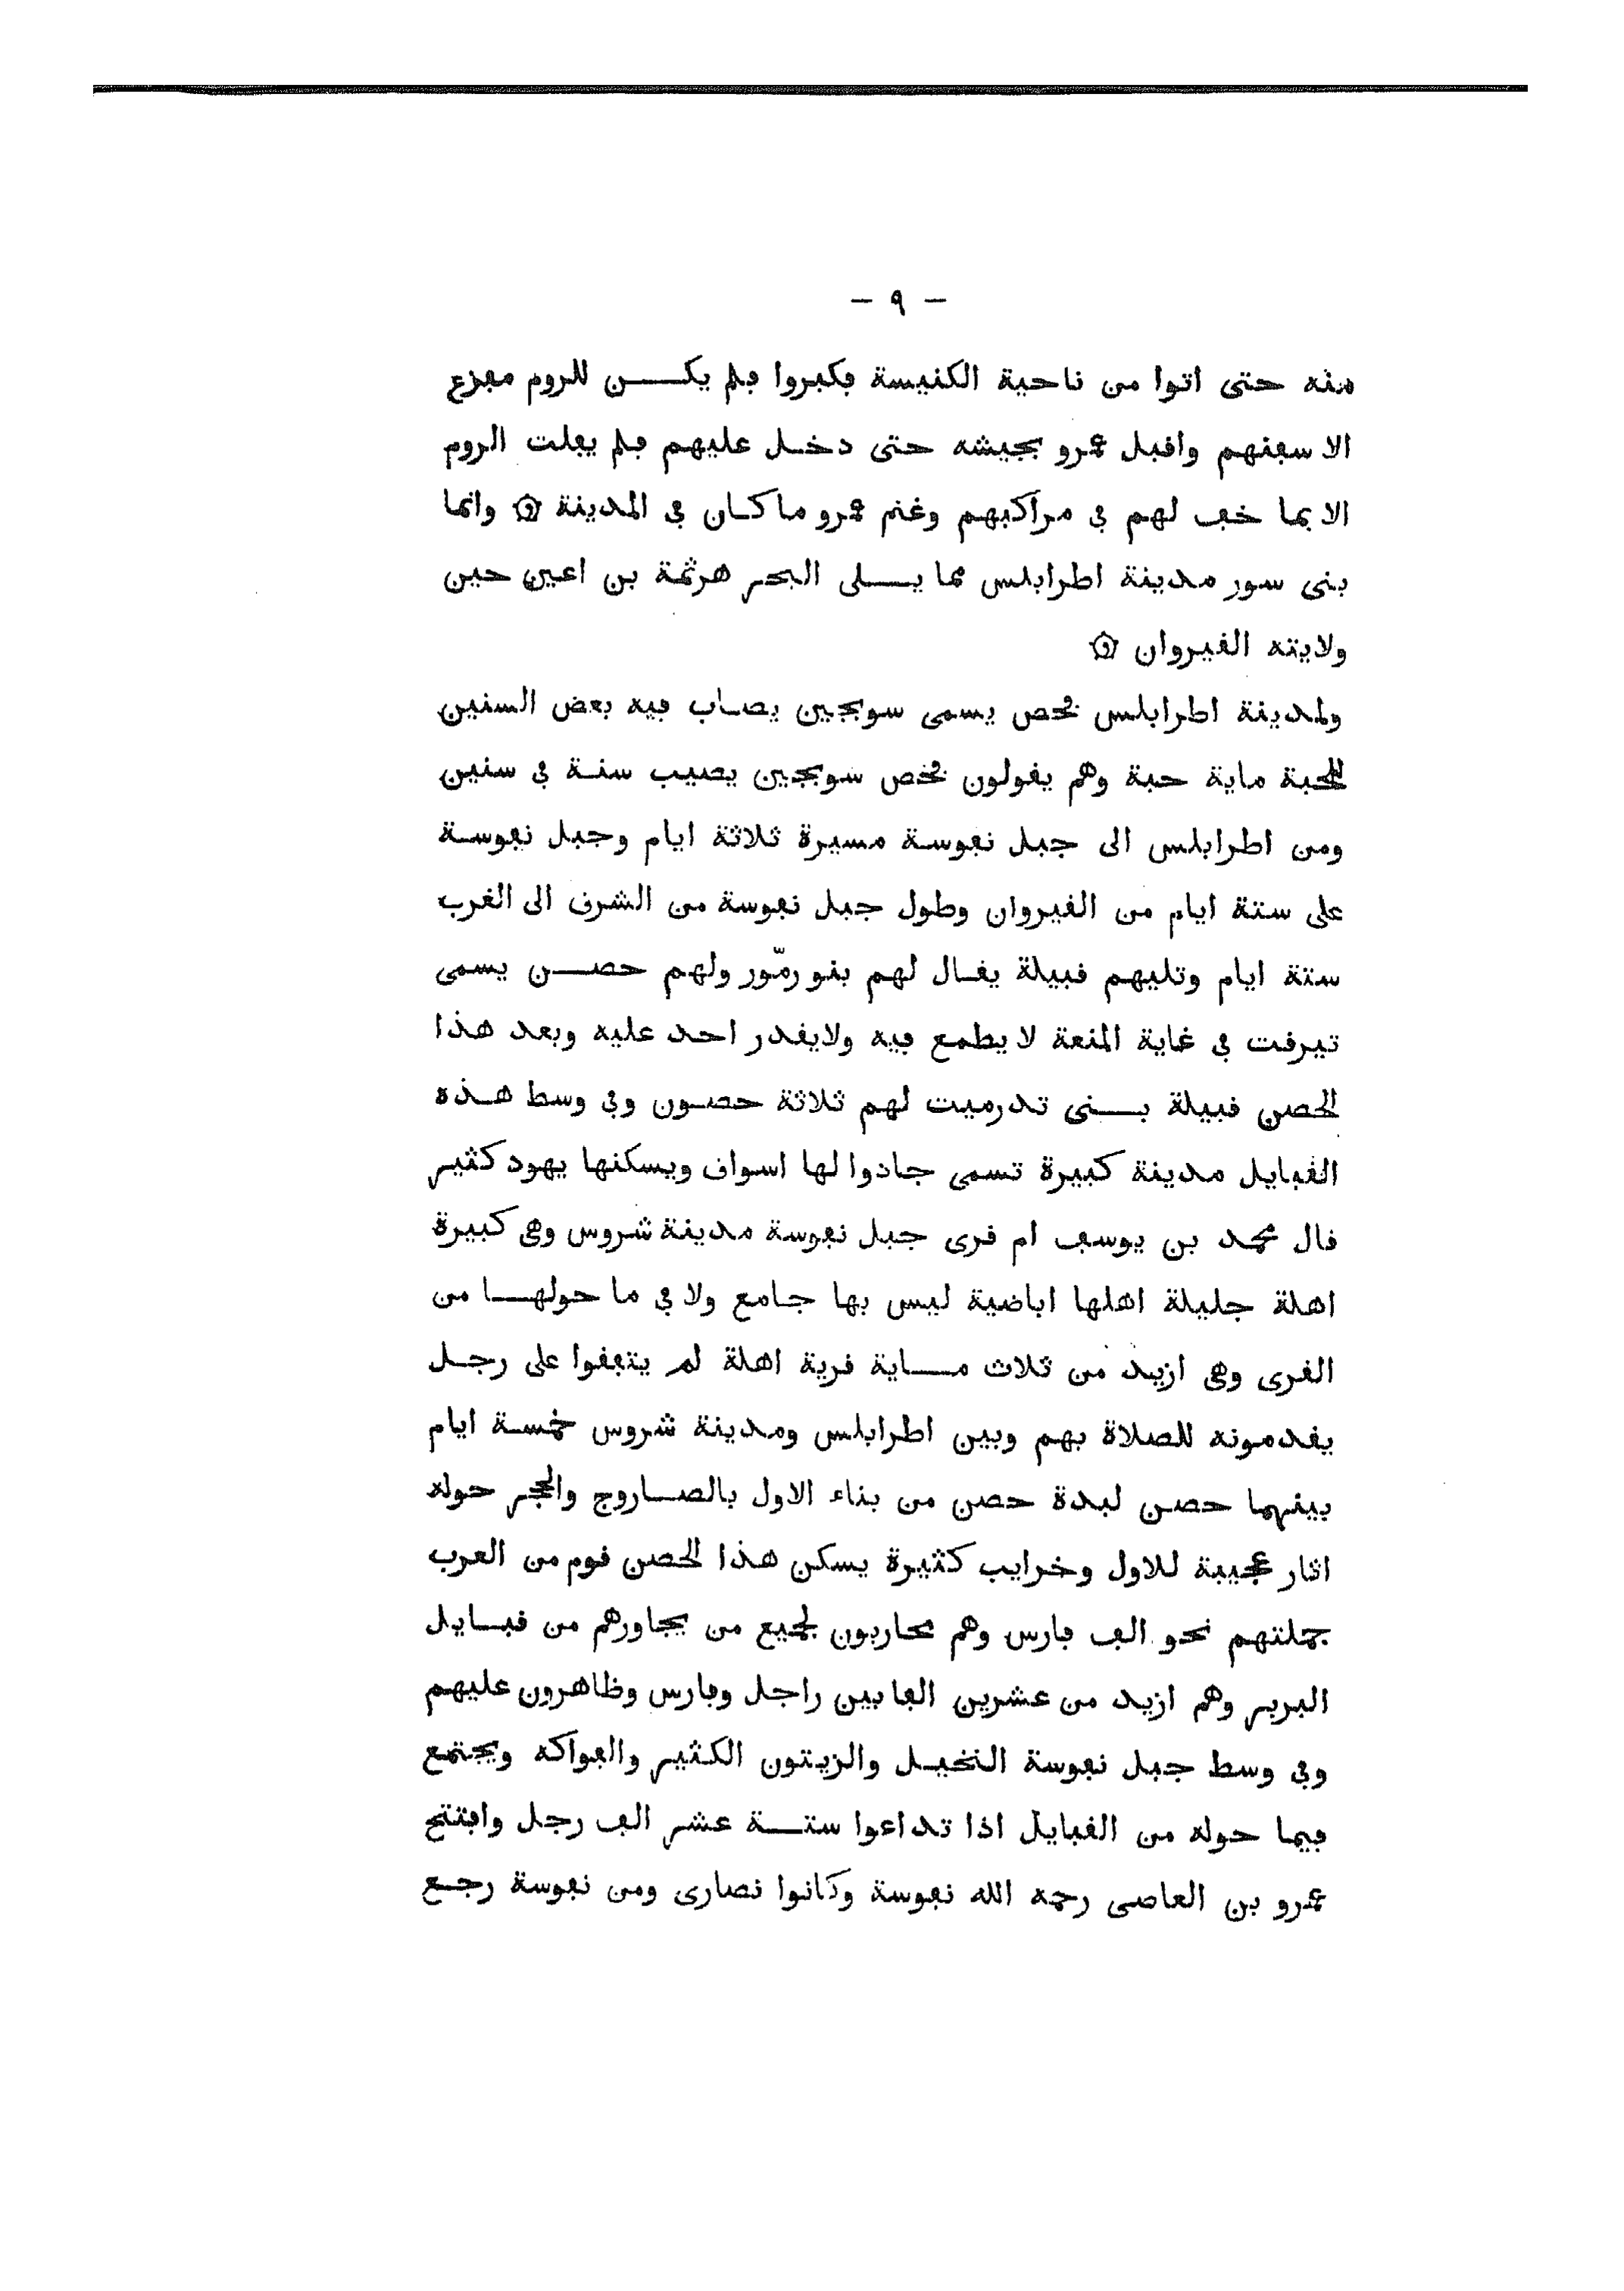 – ٩ –
منه حتى اتوا من ناحية الكنيسة فكبروا فلم يكن للروم مفزع
الا سفنهم واقبل عمرو بجيشه حتى دخل عليهم فلم يفلت الروم
الا بما خف لهم في مراكبهم وغنم عمرو ما كان في المدينة ۞ وانما
بنى سور مدينة اطرابلس مما يلى البحر هرثمة بن اعين حين
ولايته القيروان ۞
ولمدينة اطرابلس فحص يسمى سوبجين يصاب فيه بعض السنين
للحبة ماية حبة وهم يقولون فحص سوبجين يصيب سنة في سنين
ومن اطرابلس الى جبل نفوسة مسيرة ثلاثة ايام وجبل نفوسة
على ستة ايام من القيروان وطول جبل نفوسة من الشرق الى الغرب
ستة ايام وتليهم قبيلة يقال لهم بنو رمّور ولهم حصن يسمى
تيرقت في غاية المنعة لا يطمع فيه ولايقدر احد عليه وبعد هذا
الحصن قبيلة بنى تدرميت لهم ثلاثة حصون وفي وسط هذه
القبايل مدينة كبيرة تسمى جادوا لها اسواق ويسكنها يهود كثير
قال محمد بن يوسف ام قرى جبل نفوسة مدينة شروس وهى كبيرة
اهلة جليلة اهلها اباضية ليس بها جامع ولا في ما حولها من
القرى وهى ازيد من ثلاث ماية قرية اهلة لم يتفقوا على رجل
يقدمونه للصلاة بهم وبين اطرابلس ومدينة شروس خمسة ايام
بينهما حصن لبدة حصن من بناء الاول بالصاروج والحجر حوله
اثار عجيبة للاول وخرايب كثيرة يسكن هذا الحصن قوم من العرب
جملتهم نحو الف فارس وهم محاربون لجميع من يجاورهم من قبايل
البربر وهم ازيد من عشرين الفا بين راجل وفارس وظاهرون عليهم
وفي وسط جبل نفوسة النخيل والزيتون الكثير والفواكه ويجتمع
فيما حوله من القبايل اذا تداعوا ستة عشر الف رجل وافتتح
عمرو بن العاصى رحمه الله نفوسة وكانوا نصارى ومن نفوسة رجع